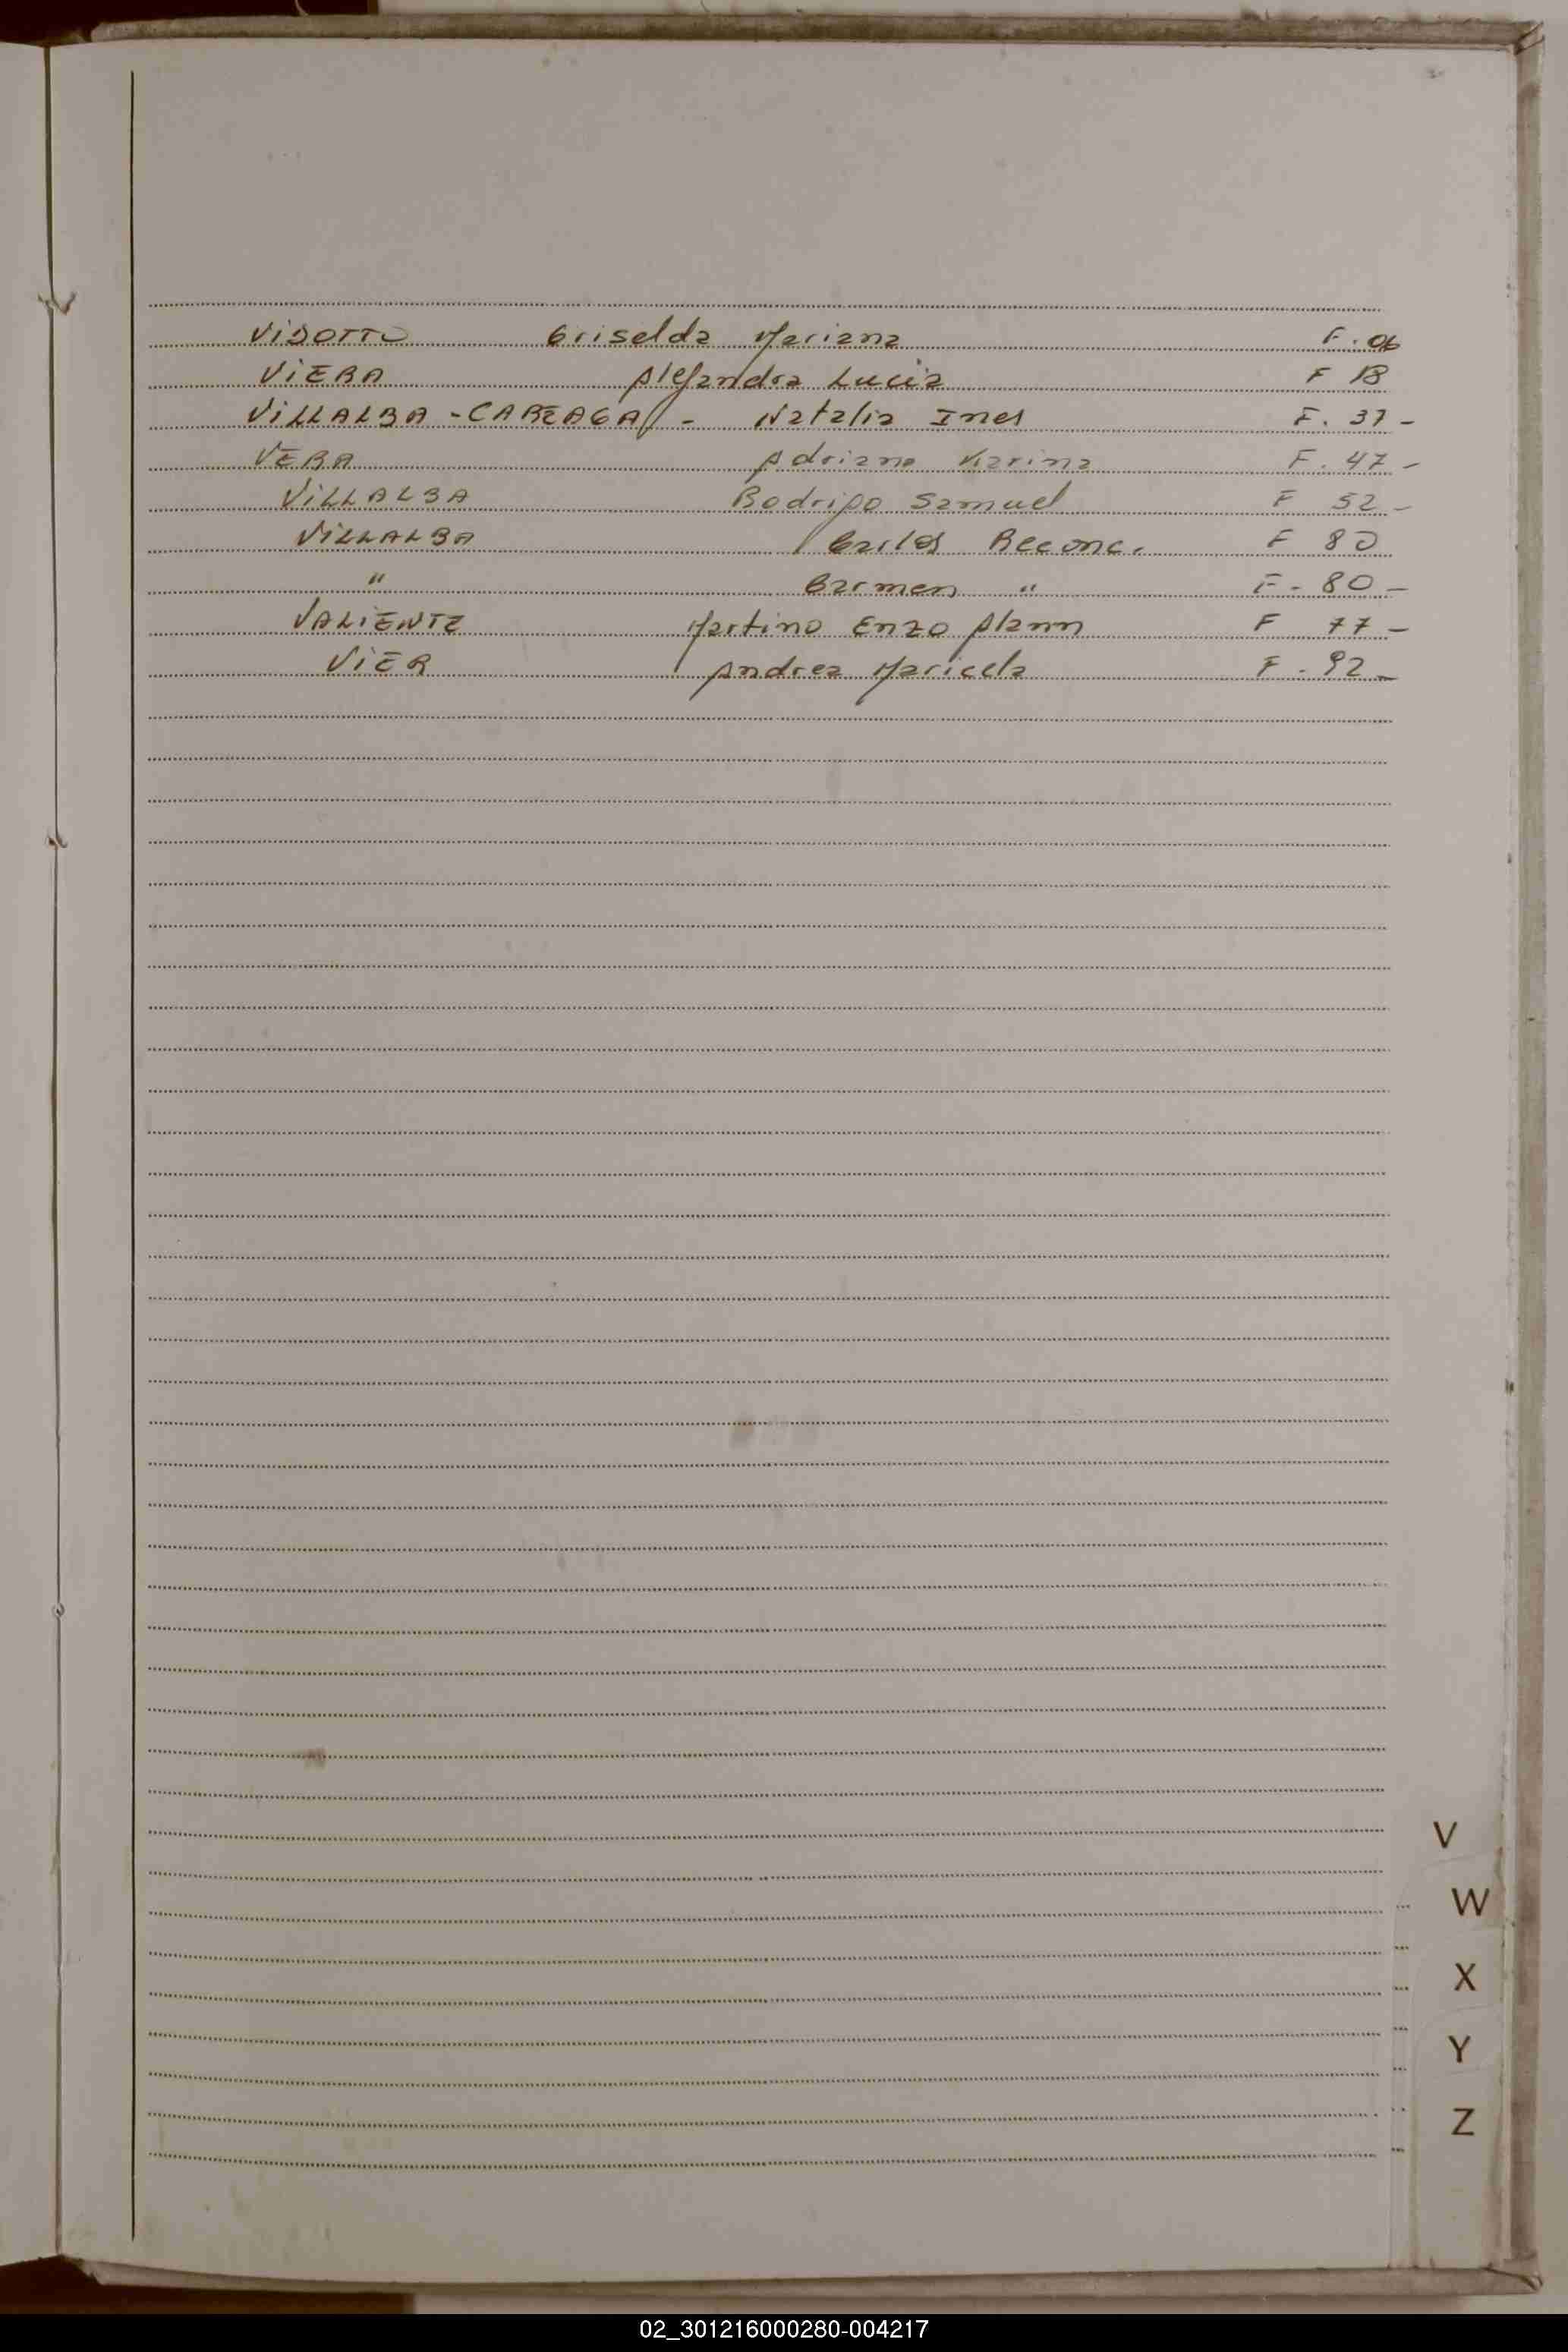 VISOTTO Griselda Mariana F. 06
VIERA Alejandra Lucia F 18
VILLALBA - CAREAGA - Natalia Ines F. 37 -
VERA Adriana Karina F. 47 -
VILLALBA Rodrigo Samuel F 52 -
VILLALBA Carlos Reconc. F 80
" Carmen " F - 80 -
VALIENTE Martino Enzo Alann F 77 -
VIER Andrea Maricela F - 92 -
V
W
X
Y
Z
02_301216000280-004217